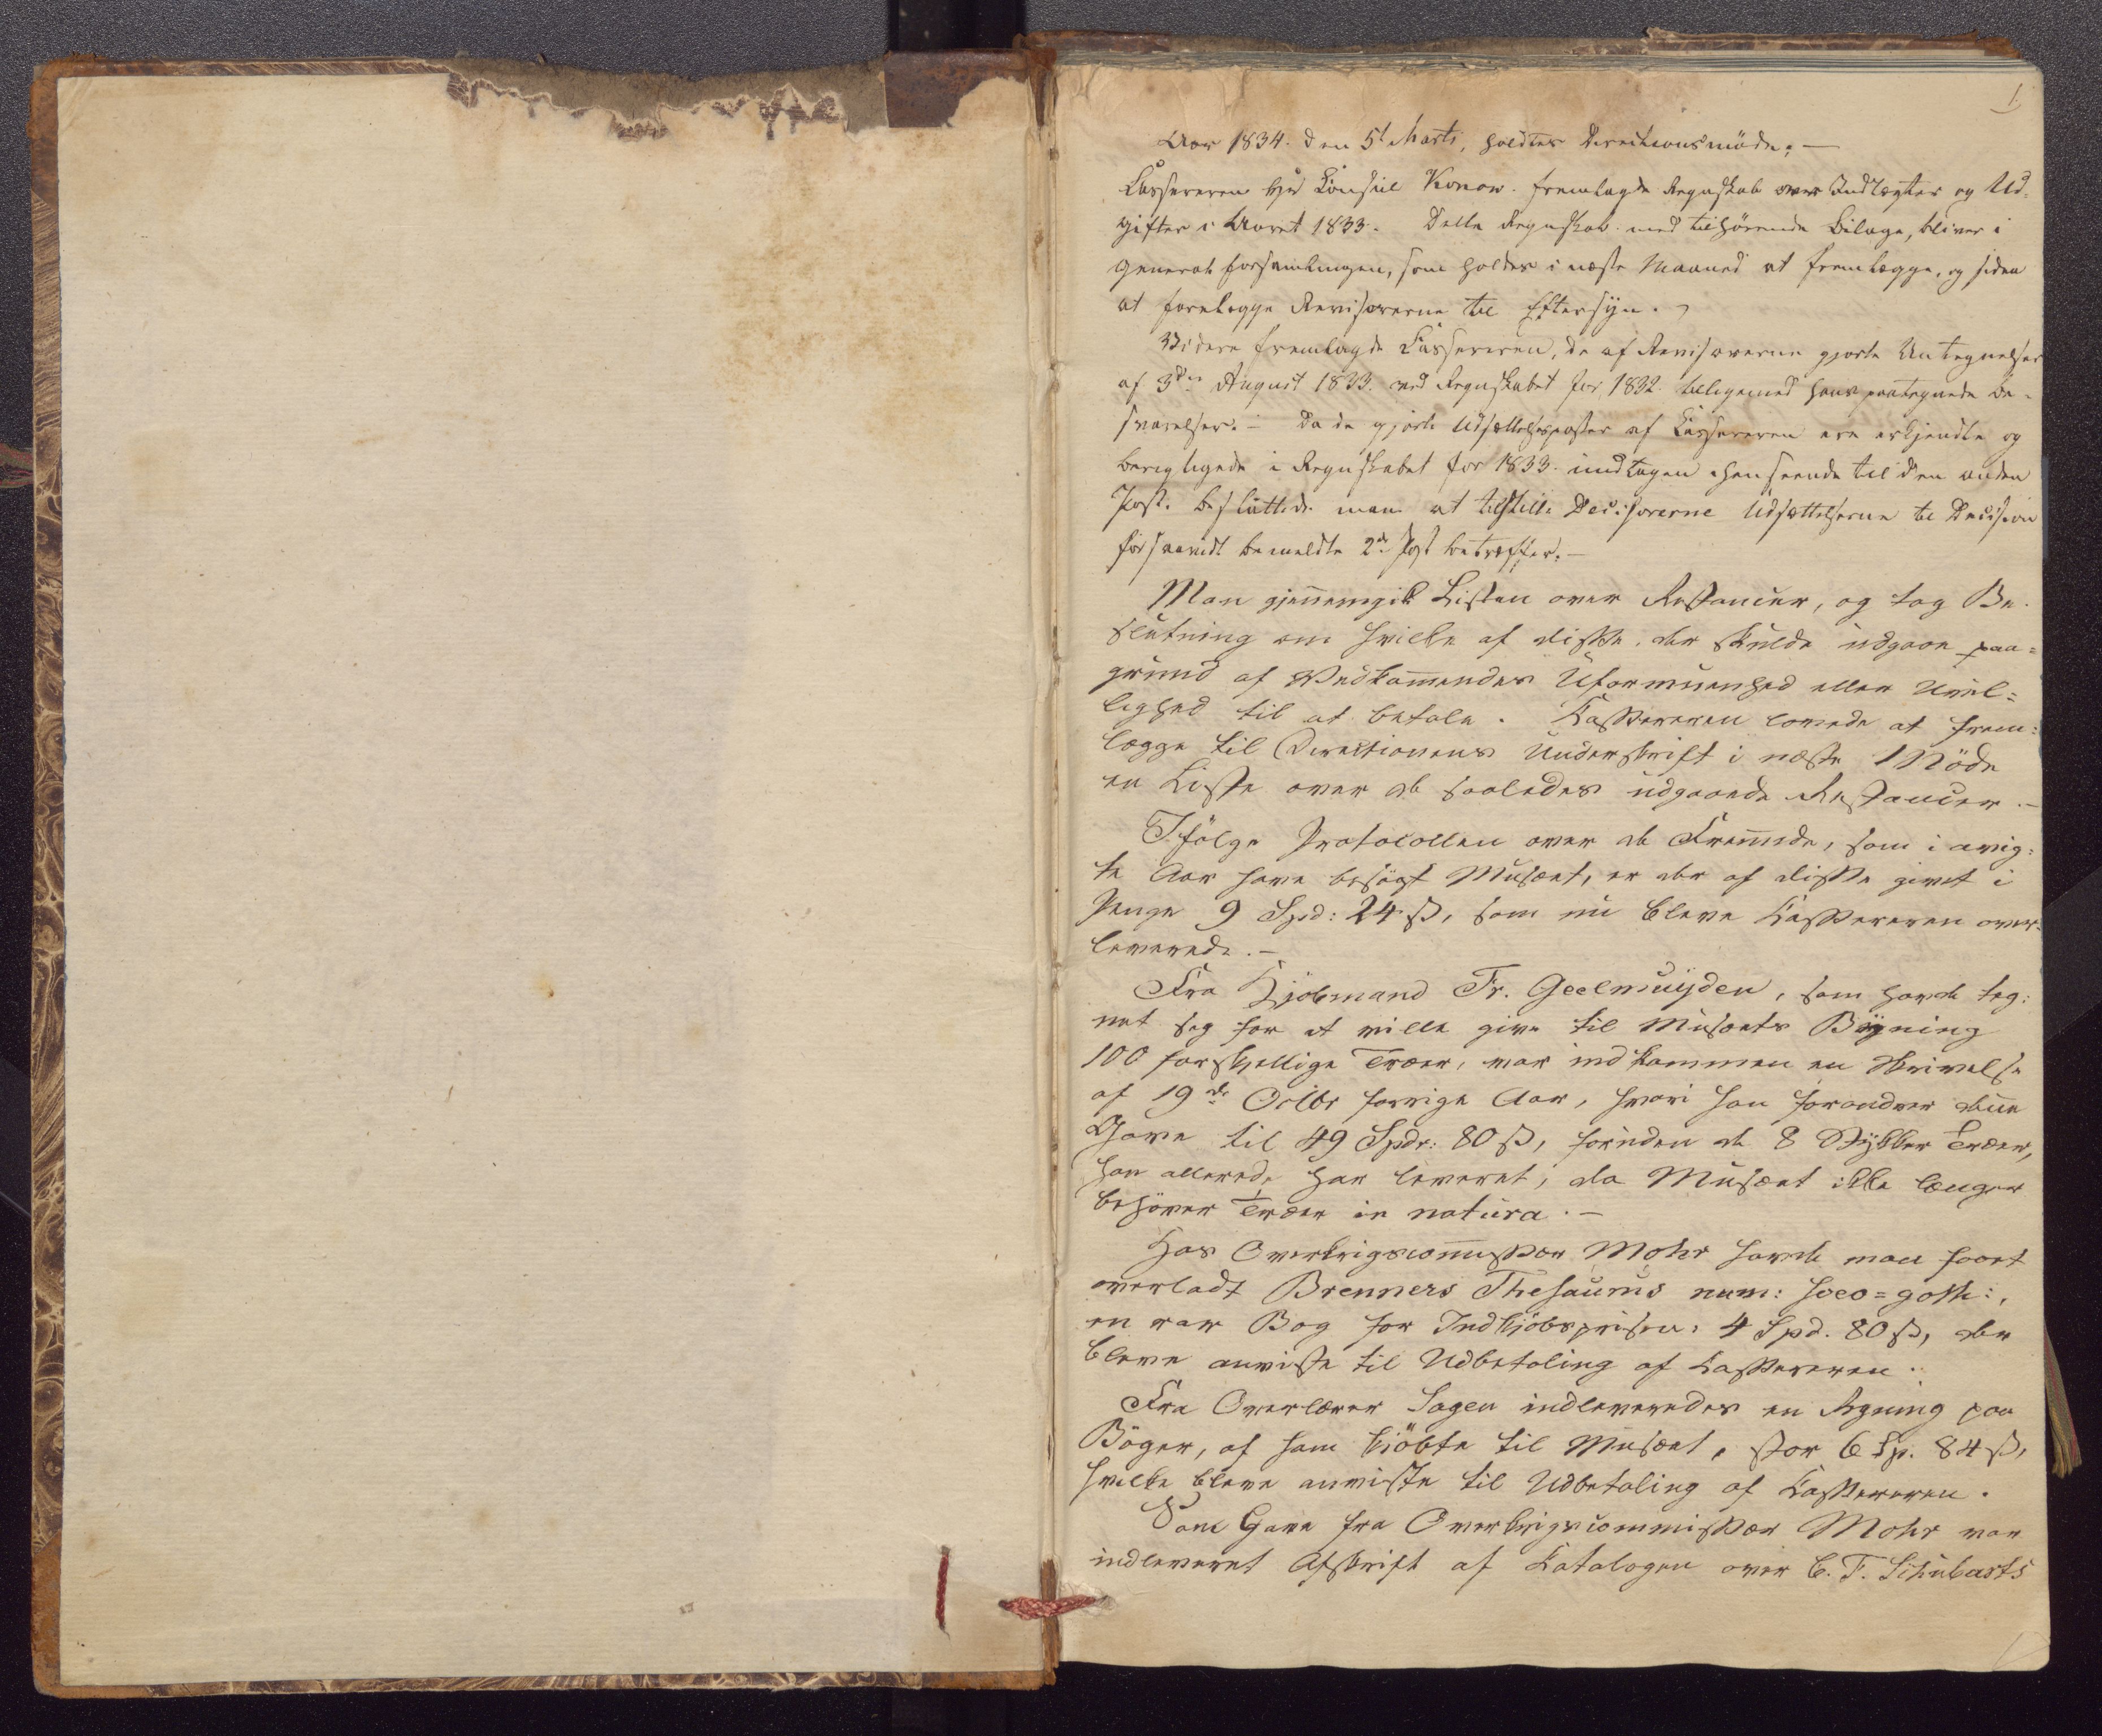 1
Aar 1834. den 5t Marts, holdtes Directionsmöde; —
Kassereren Hr Konsul Konow. fremlagde Regnskab over Indtægter og Ud-
gifter i Aaret 1833. Dette Regnskab med tilhørende Bilage, bliver i
Generalforsamlingen, som holdes i næste Maaned at fremlægge, og siden
at forelægge Revisorerne til Eftersyn.
Videre fremlagde Kassereren, de af Revisorerne gjorte Antegnelser
af 3die August 1833. ved Regnskabet for 1832. tilligemed hans paategnede Be-
svarelser. — Da de gjorte Udsættelsesposter af Kassereren ere erkjendte og
berigtigede i Regnskabet for 1833. undtagen henseende til den anden
Post. besluttede man at tilstille Decisorerne Udsættelserne til Decision
forsaavidt bemeldte 2de Post betræffer. —
Man gjennemgik Listen over Restancer, og tog Be-
slutning om hvilke af disse der skulde udgaae paa=
grund af Vedkommendes Uformuenhed eller Uvil=
lighed til at betale. Kassereren lovede at frem=
lægge til Directionens Underskrift i næste Möde
en Liste over de saaledes udgaaede Restancer. —
Ifölge Protocollen over de Fremmede, som i avig=
te Aar have besögt Musæet, er der af disse givet i
Penge 9 Spd: 24 ß, som nu bleve Kassereren over-
leverede. —
Fra Kjöbmand Fr. Geelmuÿden, som havde teg=
net sig for at ville give til Musæets Bygning
100 forskjellige Træer, var indkommen en Skrivelse
af 19de Octbr forrige Aar, hvori han forandrer denne
Gave til 49 Spdr: 80 ß, foruden de 8 Stÿkker Træer,
han allerede har leveret, da Musæet ikke længer
behöver Træer in natura. —
Hos Overkrigscommissær Mohr havde man faaet
overladt Brenners Thesaurus num: sveo=goth:,
en rar Bog for Indkjöbsprisen: 4 Spd. 80 ß, der
bleve anviste til Udbetaling af Kassereren.
Fra Overlærer Sagen indleveredes en Regning paa
Böger, af ham kjöbte til Musæet, stor 6 Sp. 84 ß,
hvilke bleve anviste til Udbetaling af Kassereren.
Som Gave fra Overkrigscommissær Mohr var
indleveret Afskrift af Katalogen over C. F. Schubarts